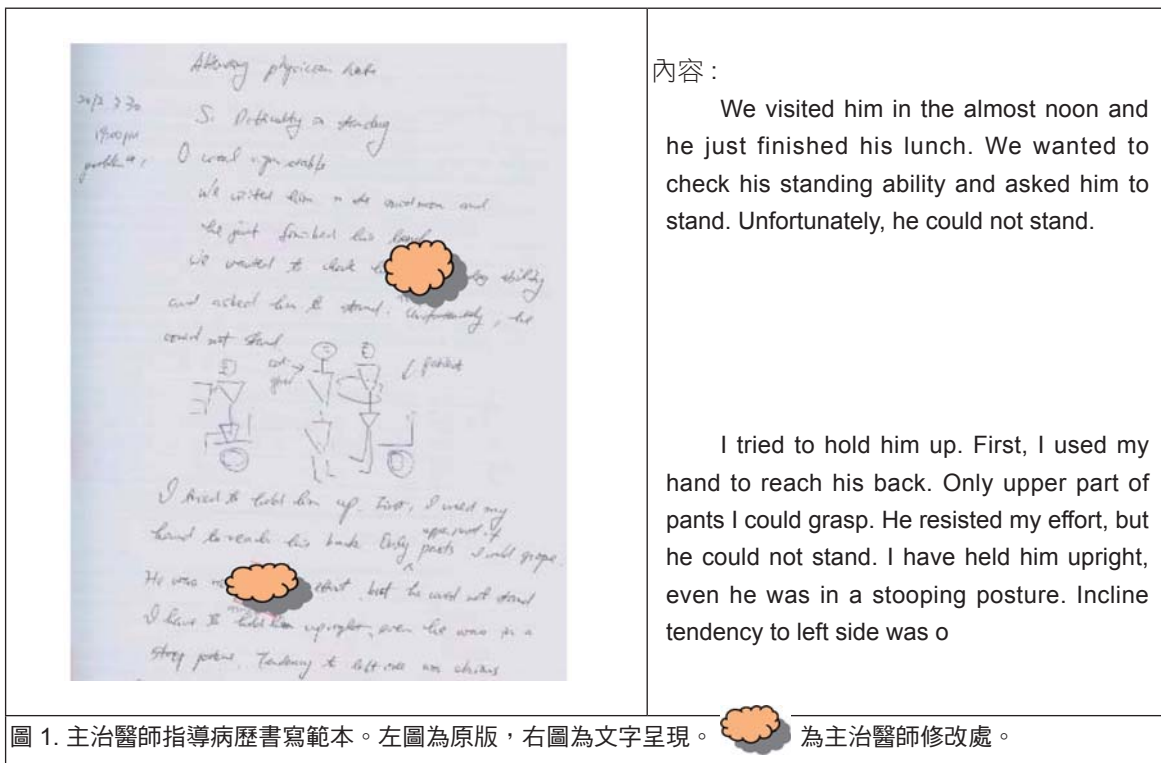 Attending physician note
19:00 pm
S: Difficulty in standing
O
We visited him in the and
he just finished his lunch
We wanted to check ability
and asked him to stand. Unfortunately, he
could not stand
patient
I tried to hold him up. First, I used my
upper part of
hand to reach his back. Only pants I could
He was effort, but he could not stand
I have to hold him upright, even he was in a
stoop posture. Tendency to left side was
內容 :
We visited him in the almost noon and
he just finished his lunch. We wanted to
check his standing ability and asked him to
stand. Unfortunately, he could not stand.
I tried to hold him up. First, I used my
hand to reach his back. Only upper part of
pants I could grasp. He resisted my effort, but
he could not stand. I have held him upright,
even he was in a stooping posture. Incline
tendency to left side was o
圖 1. 主治醫師指導病歷書寫範本。左圖為原版，右圖為文字呈現。 為主治醫師修改處。